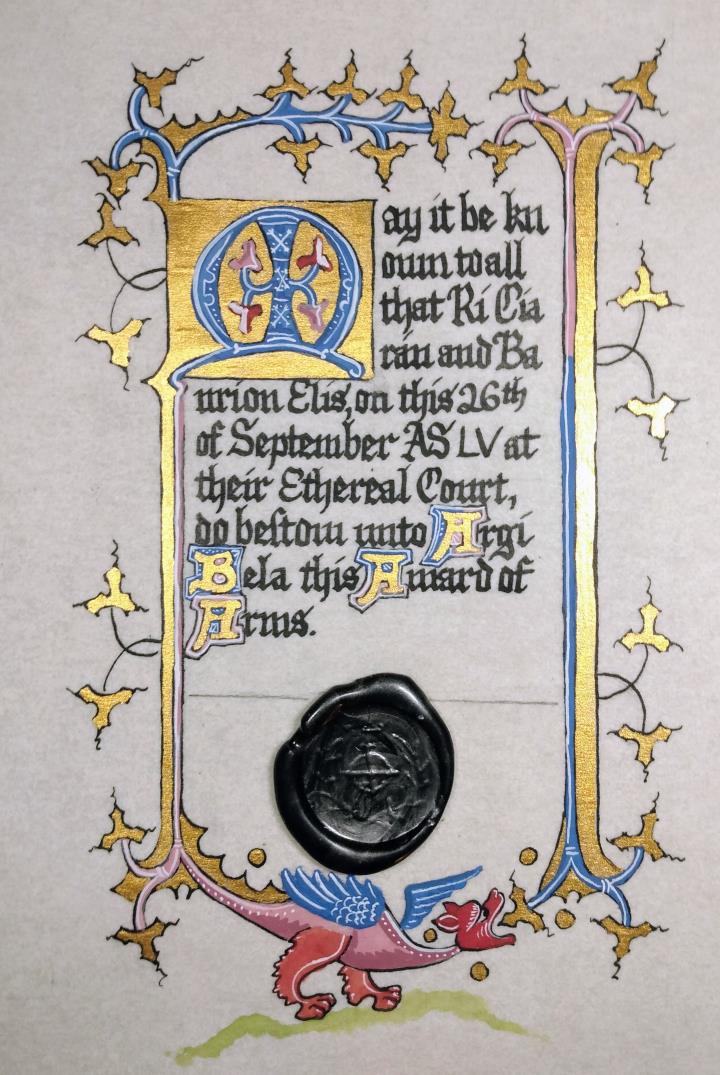 May it be kn
own to all
that Ri Cia
rán and Ba
nrion Elis, on this 26th
of September AS LV at
their Ethereal Court,
do bestow unto Argi
Bela this Award of
Arms.